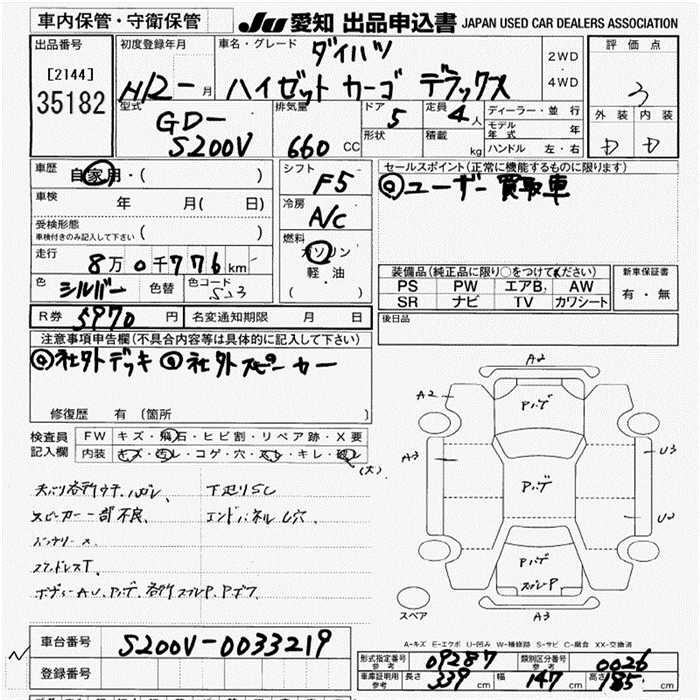 車内保管・守衛保管 JU 愛知 出品申込書 JAPAN USED CAR DEALERS ASSOCIATION
出品番号 初度登録年月 車名・グレード ダイハツ 2WD・4WD 評価点
[2144] 35182 H12- 月 ハイゼットカーゴ デラックス 3
型式 GD-S200V 排気量 660 CC ドア 5 定員 4人 ディーラー・並行 外装 内装
形状 積載 kg モデル年式 年 D D
ハンドル 左・右
車歴 自家用・( ) シフト F5 セールスポイント(正常に機能するものに限ります)
車検 年 月( 日) 冷房 A/C ユーザー買取車
受検形態 車検付きのみ記入して下さい ( )
走行 8万0千776km 燃料 ガソリン 軽油 ( )
装備品(純正品に限り○をつけてください) 新車保証書
色 シルバー 色替 色コード S53 PS PW エアB AW 有・無
SR ナビ TV カワシート
R券 5970円 名変通知期限 月 日 後日品
注意事項申告欄(不具合内容等は具体的に記入して下さい)
社外デッキ 社外スピーカー
修復歴 有(箇所 )
検査員記入欄 FW キズ・飛石・ヒビ割・リペア跡・X要
内装 キズ・汚レ・コゲ・穴・スレ・キレ・破レ (大)
下廻りSC
スピーカー一部不良 エンドパネルU穴
バッテリーx
A2
A2
A3
U3
A3
スペア
A-キズ E-エクボ U-凹み W-補修跡 S-サビ C-腐食 XX-交換済
車台番号 S200V-0033219
登録番号
形式指定番号 参考 09287 類別区分番号 参考 0026
車庫証明用 参考 長さ 339 cm 幅 147 cm 高さ 185 cm